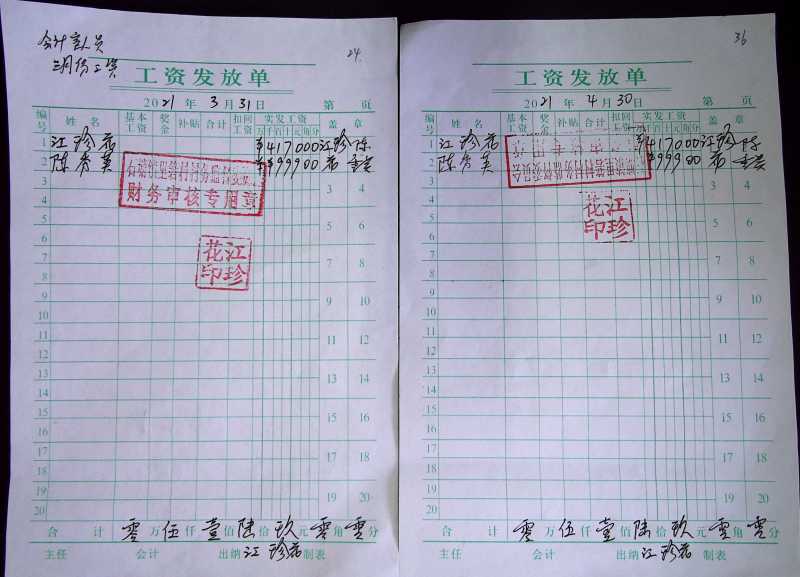 会计室人员
三月份工资
24
工资发放单
2021 年 3 月 31 日 第 页
编号 姓名 基本工资 奖金 补贴 合计 扣回工资 实发工资 万千百十元角分 盖章
1 江珍花 ¥417000 江珍花 陈秀英
2 陈秀英 ¥99900
财务审核专用章
江珍花印
3 3 4
4
5 5 6
6
7 7 8
8
9 9 10
10
11 11 12
12
13 13 14
14
15 15 16
16
17 17 18
18
19 19 20
20
合计 零万伍仟壹佰陆拾玖元零角零分
主任 会计 出纳 江珍花 制表
36
工资发放单
2021 年 4 月 30 日 第 页
编号 姓名 基本工资 奖金 补贴 合计 扣回工资 实发工资 万千百十元角分 盖章
1 江珍花 ¥417000 江珍花 陈秀英
2 陈秀英 ¥99900
江珍花印
3 3 4
4
5 5 6
6
7 7 8
8
9 9 10
10
11 11 12
12
13 13 14
14
15 15 16
16
17 17 18
18
19 19 20
20
合计 零万伍仟壹佰陆拾玖元零角零分
主任 会计 出纳 江珍花 制表